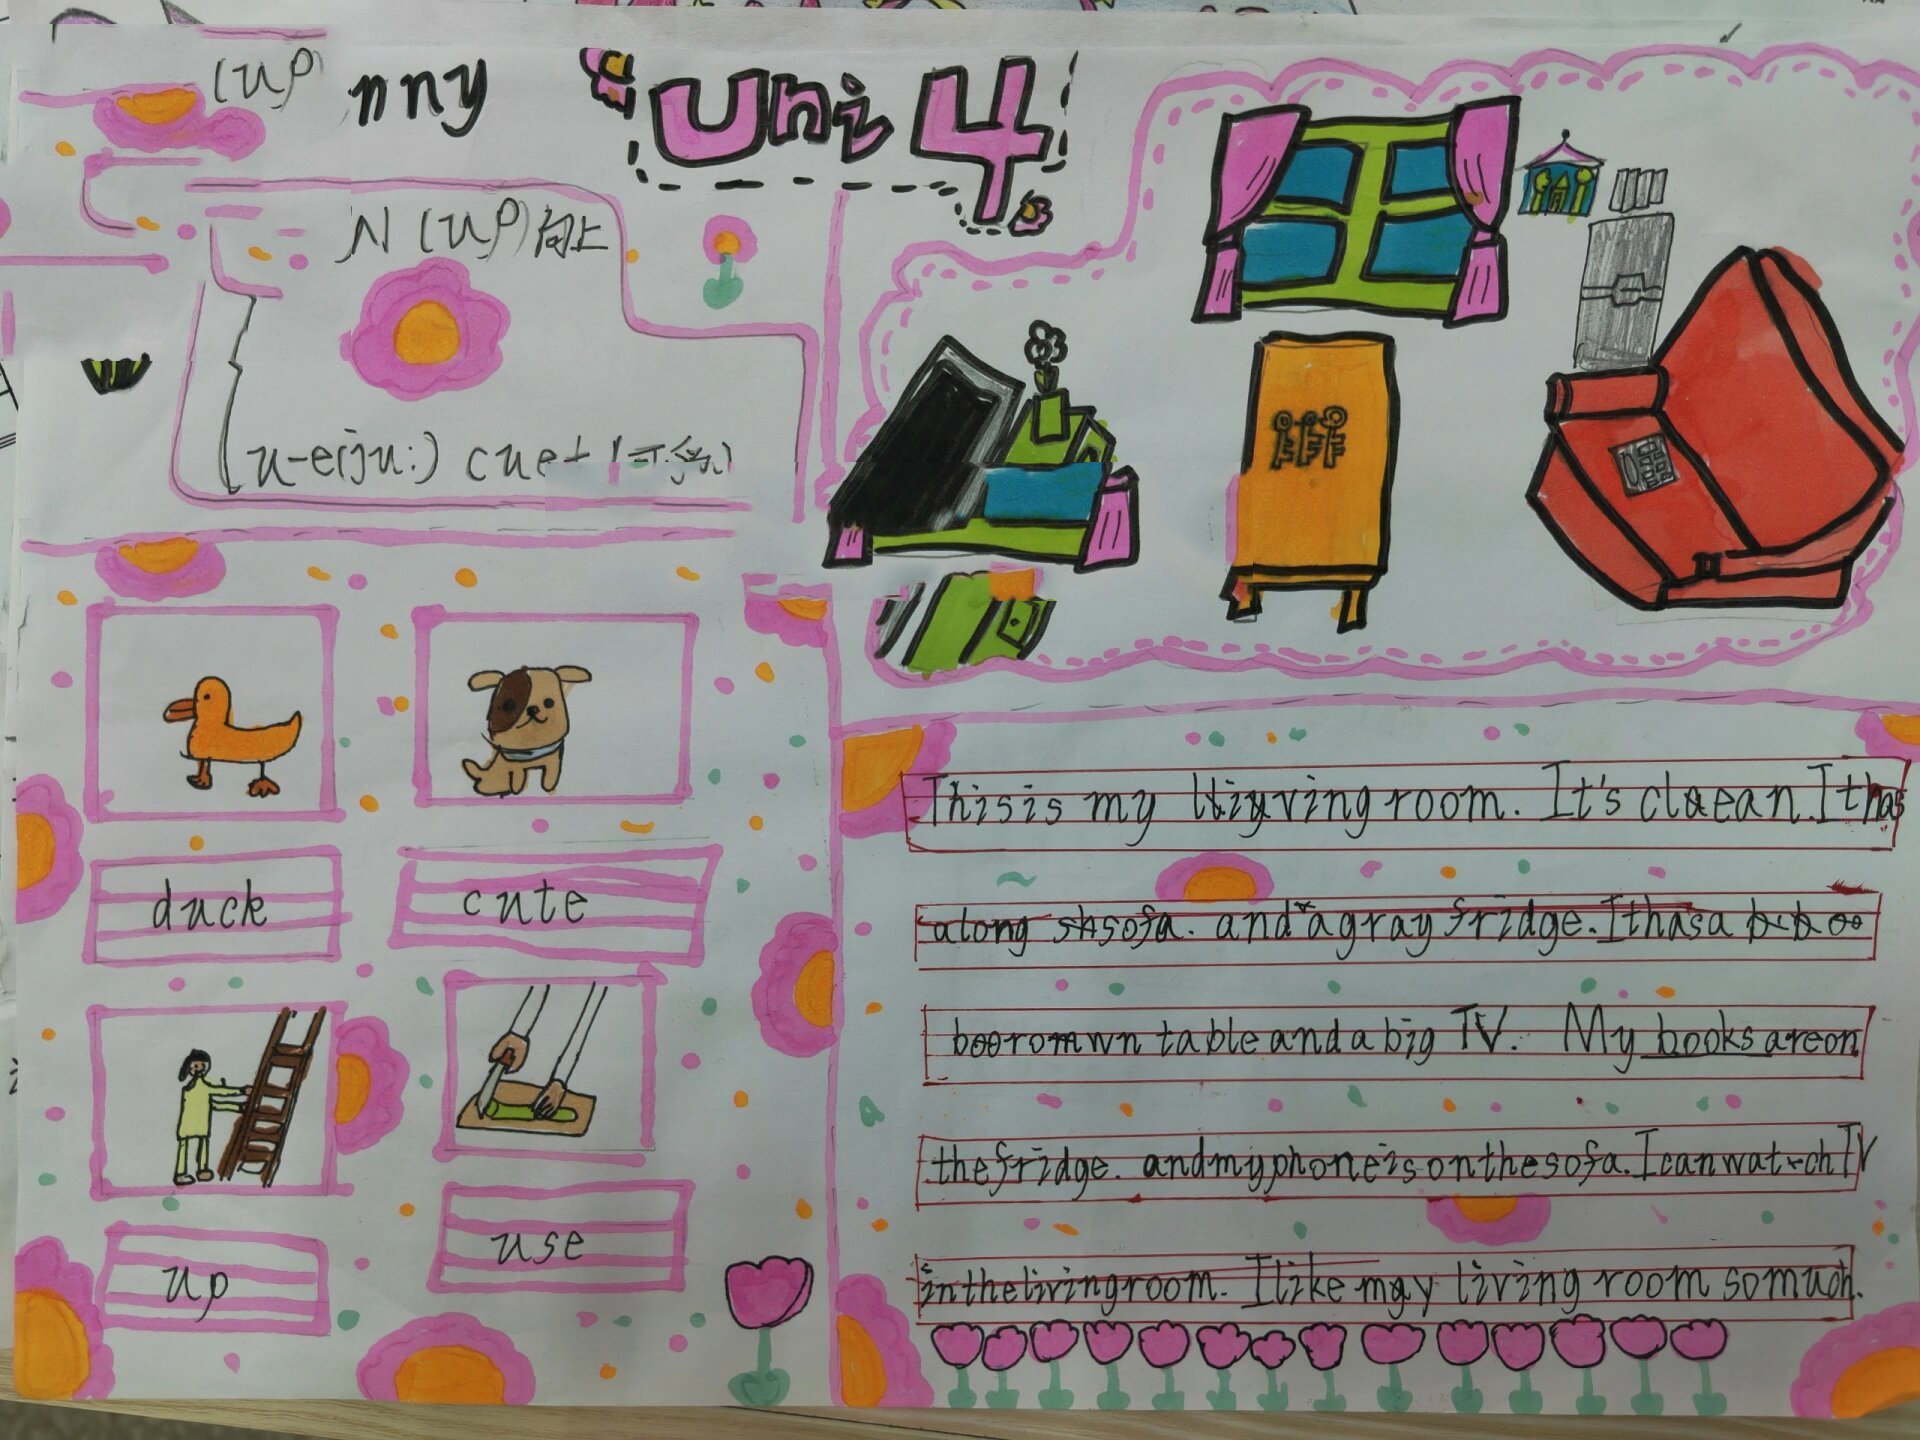 (up)
nny
Uni 4
(up)向上
u-e(ju:)
duck
cute
up
use
This is my living room. It's clean. It has
along sofa. and a gray fridge. It has a
table and a big TV. My books are on
the fridge. and my phone is on the sofa. I can watch TV
in the living room. I like my living room so much.